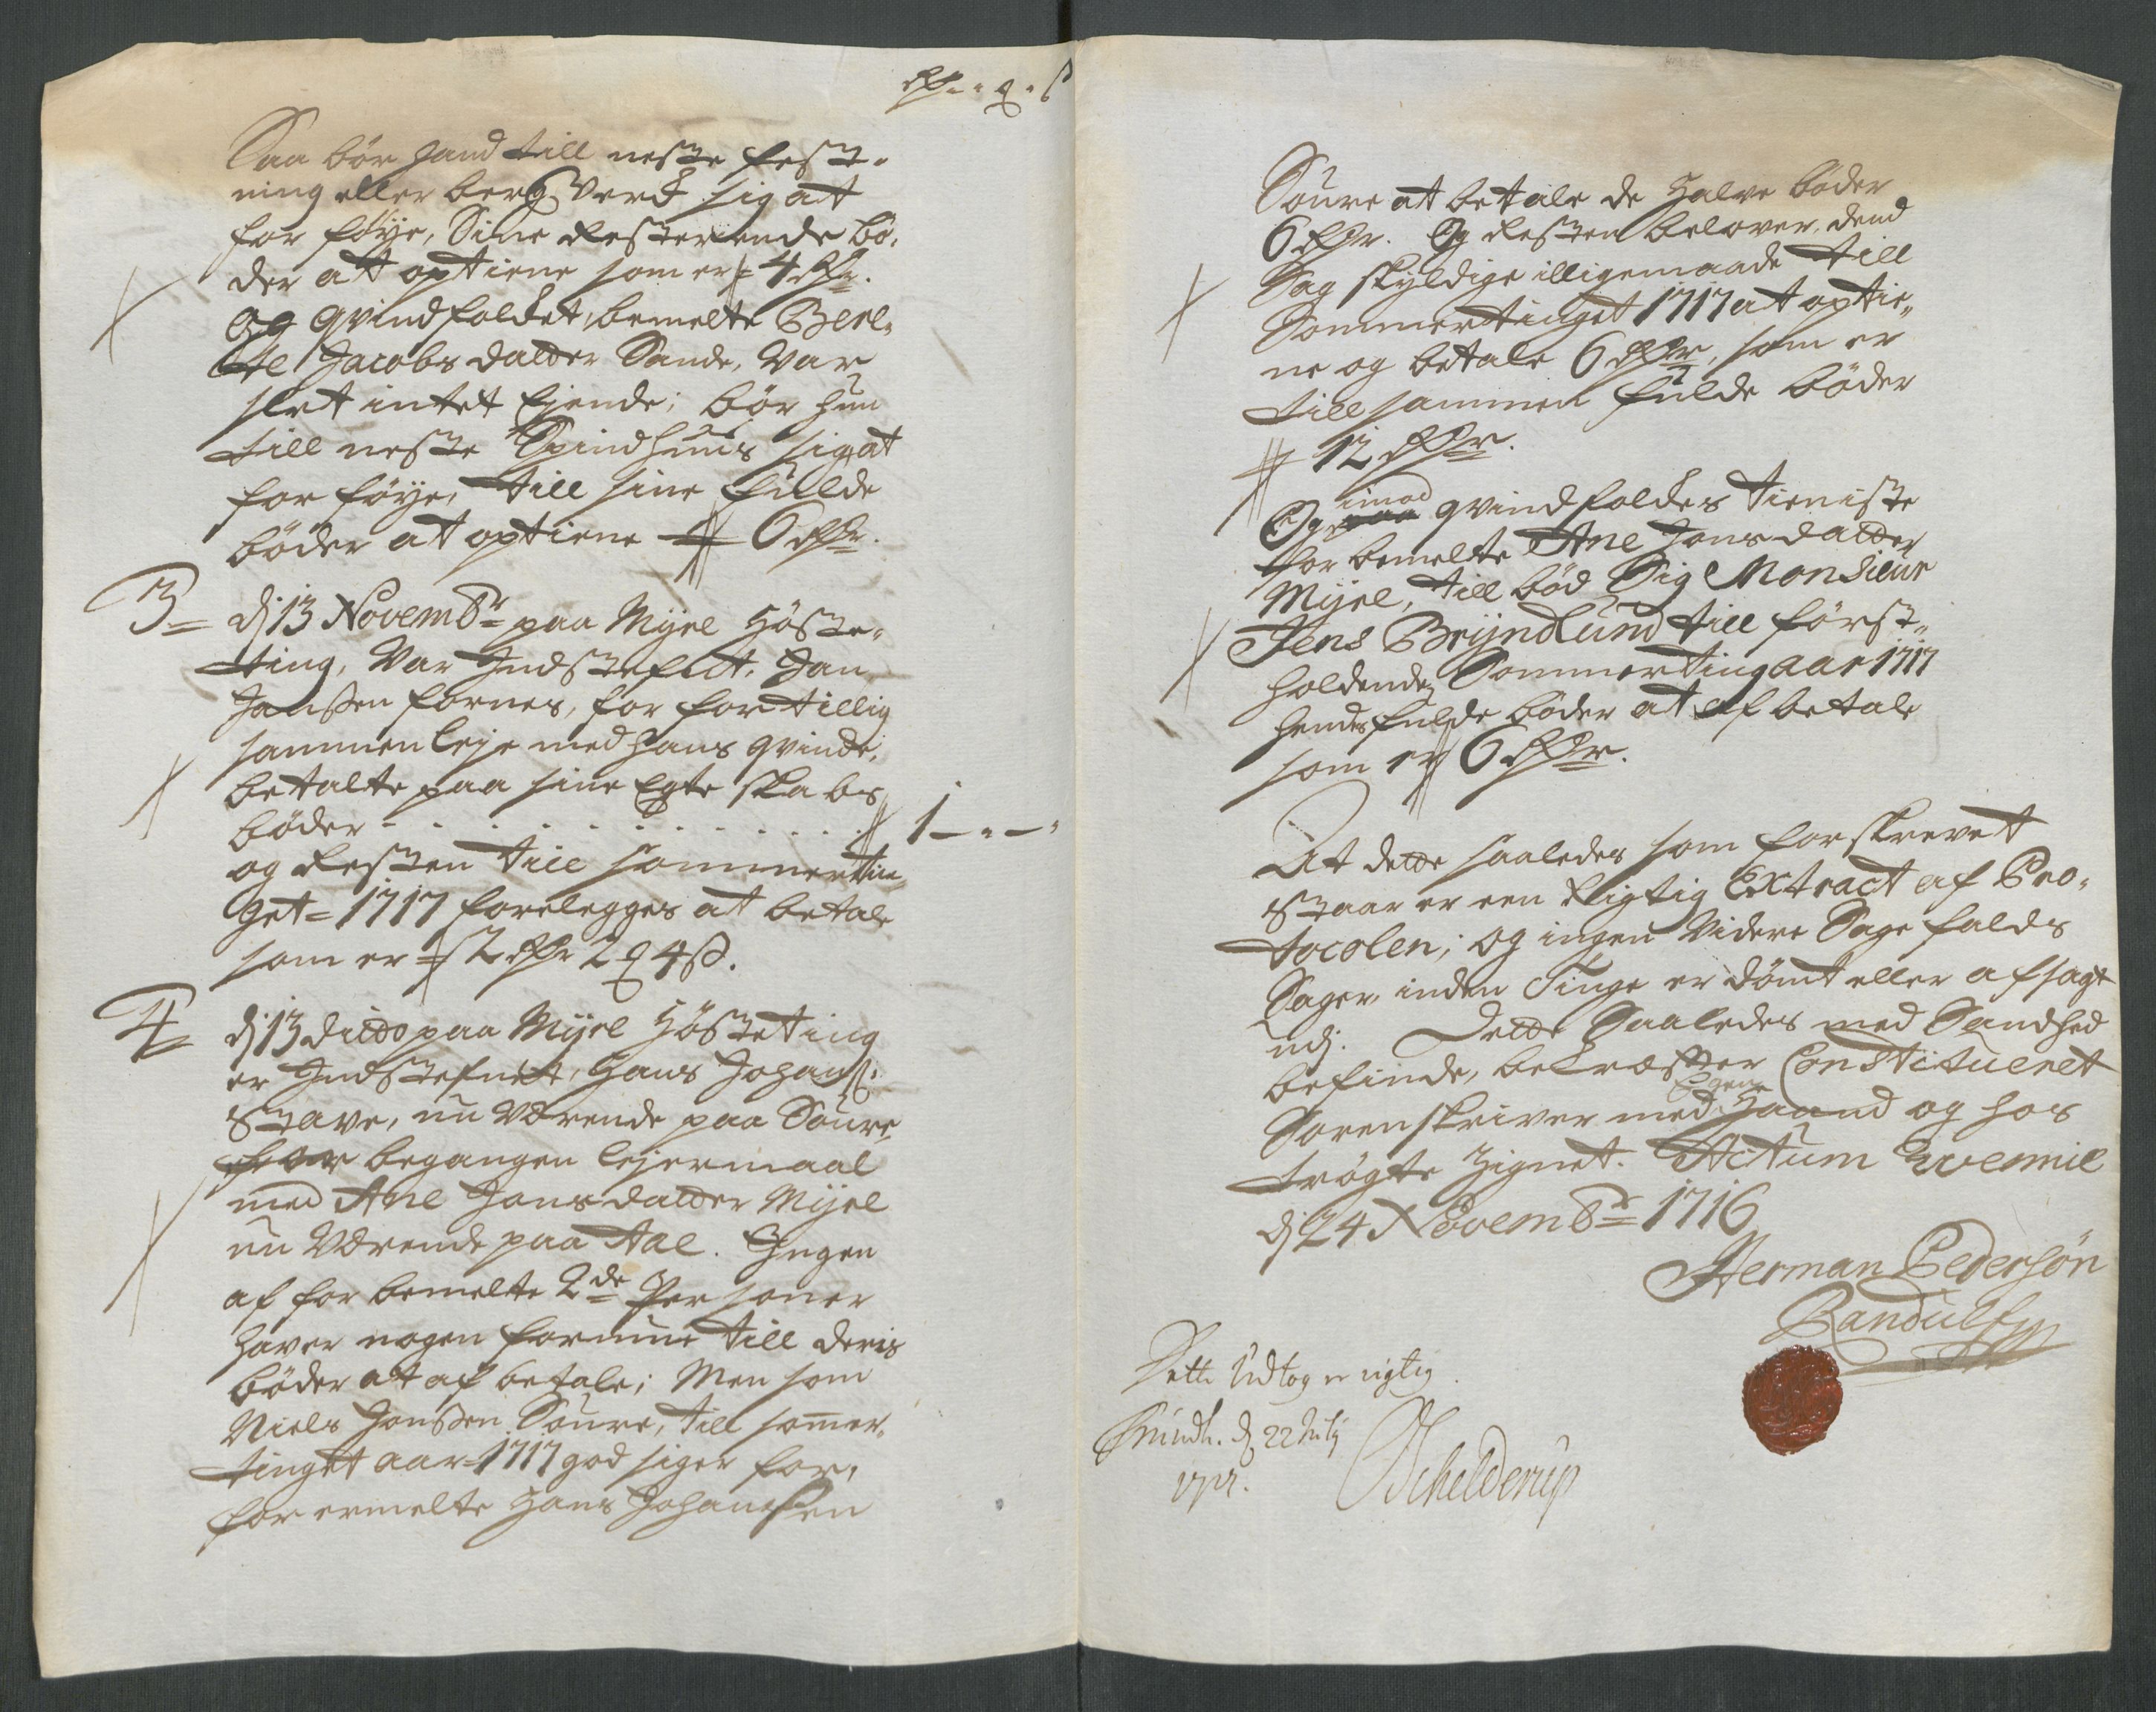 Rdr - q - ß
Saa bør hand till neste fest-
ning eller bergverk sig at
for føye, Sine Resterende bø-
der at optiene som er 4 Rdr.
Og qvindfolket, bemelte Berl-
te Jacobsdatter Sande, var
slet intet Ejende; bør hun
till neste Spindhuus sig at
for føye, till sine fulde
bøder at optiene 6 Rdr.
3 dj 13 Novembr paa Myel Høste-
ting, var Indstefnt, Jan
Janßen fornes, for for tillig
sammenleje med hans qvinde,
betalte paa sine Egteskabs
bøder - - - - - - - - 1 - " - "
og Resten till sommerthin-
get 1717 forelegges at betale
som er 2 Rdr 2 q 4 ß.
4 dj 13 ditto paa Myel Høsteting
er Indstefnet, Hans Johanß:
Stave, nu værende paa Soure,
for begangen lejermaal
med Ane Jonsdatter Myel
nu værende paa Aae. Ingen
af for bemelte 2de Personer
haver nogen formue till deris
bøder at af betale; Men som
Niels Jonßen Soure, till sommer-
tinget aar 1717 god siger for,
for ermelte Hans Johanßen
Soure at betale de Halve bøder
6 Rdr. Og Resten belover, dend
Sag skyldige illigemaade till
Sommertinget 1717 at optie-
ne og betale 6 Rdr, som er
till sammen fulde bøder
12 Rdr.
Og imod qvindfolkes tieniste
for bemelte Ane Jonsdatter
Myel, till bød Sig Monsieur
Jens Bryndlund till først-
holdende Sommerting aar 1717
hendes fulde bøder at af betale
som er 6 Rdr.
At dette saaledes som forskrevet
staar er een Rigtig Extract af Pro-
tocolen; og ingen videre Sagefalds
Sager inden Tinge er dømt eller afsagt
udj. Dette Saaledes med Sandhed
befinde, bekræfter Constitueret
Sorenskriver med Egen Haand og hos
trøgte Zignet. Actum
dj 24 Novembr 1716
Herman Pedersøn
Randulf
Dette Udtog er rigtig.
Trundh. d 22 July
1717.
Schelderup